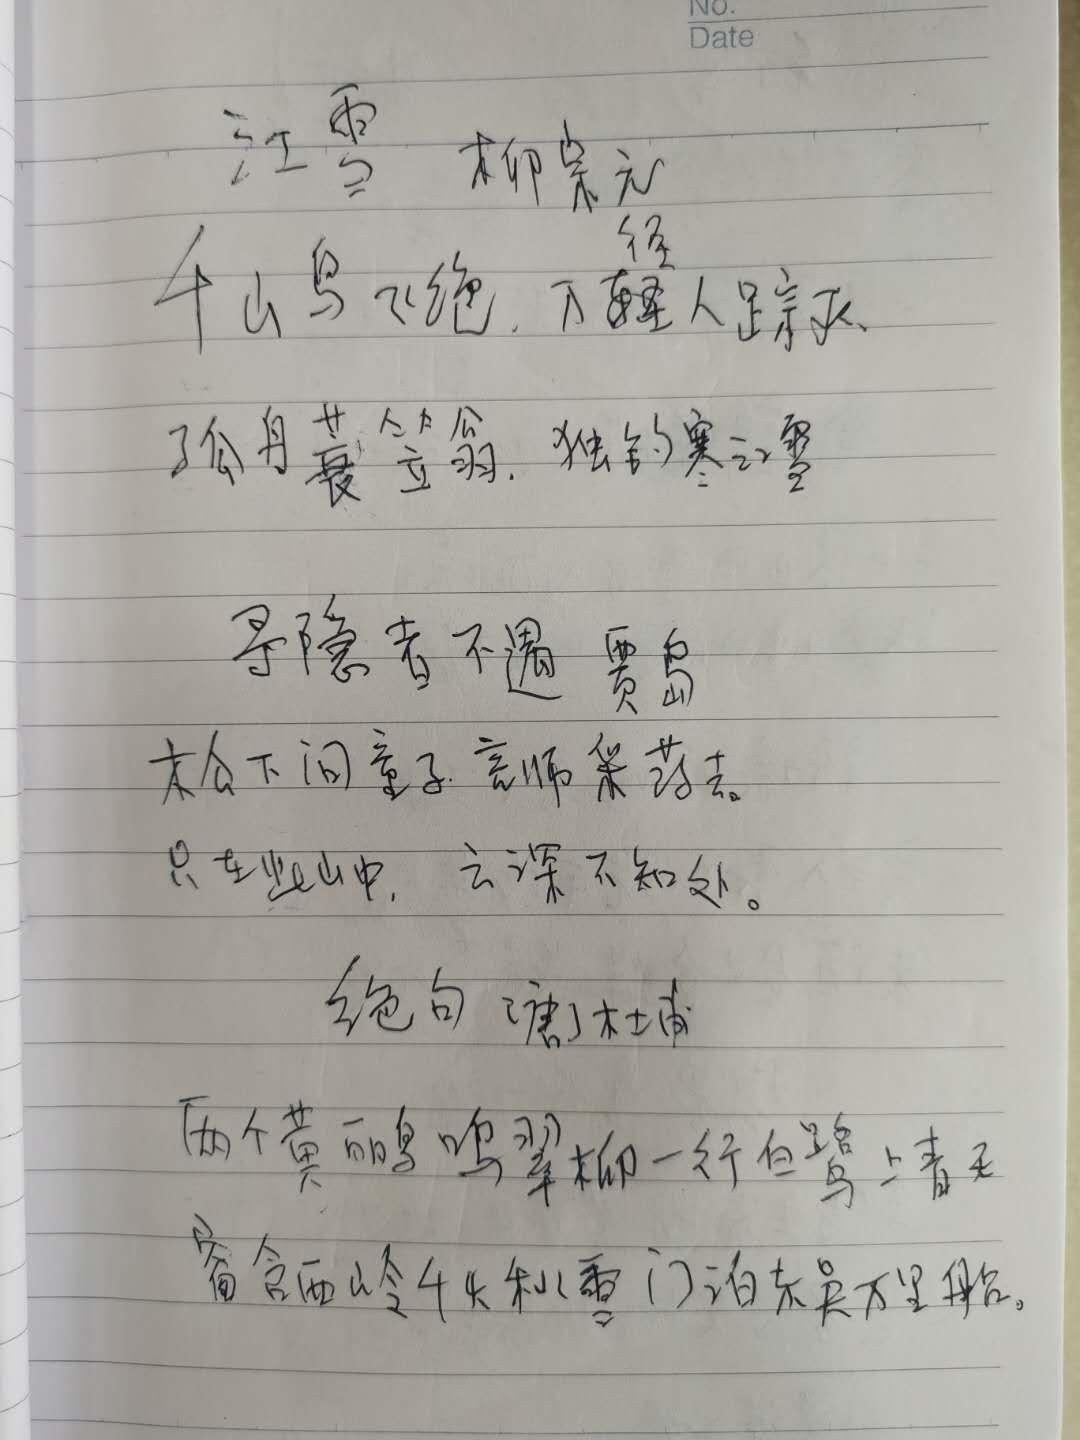 No.
Date
江雪 柳宗元
径
千山鸟飞绝,万人踪灭、
孤舟蓑笠翁,独钓寒江雪
寻隐者不遇 贾岛
松下问童子,言师采药去。
只在此山中,云深不知处。
绝句 [唐]杜甫
两个黄鹂鸣翠柳一行白鹭上青天
窗含西岭千秋雪门泊东吴万里船。